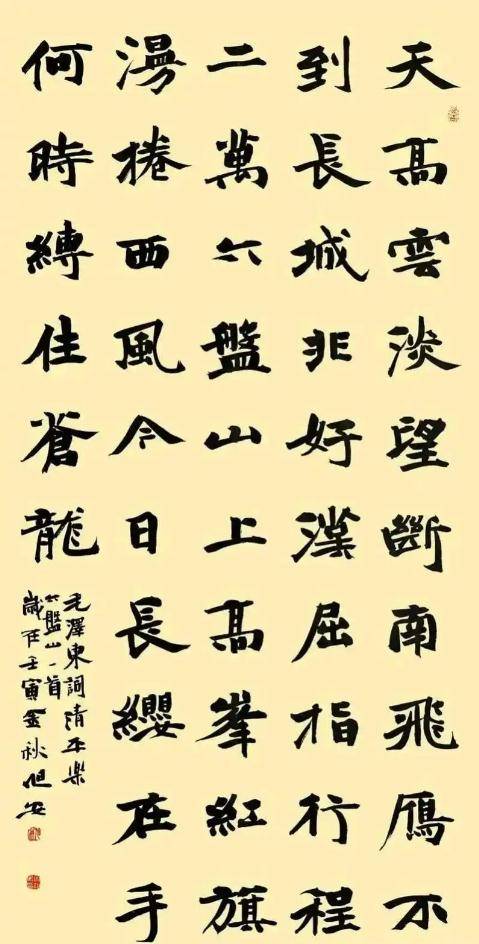 天高雲淡望斷南飛鴈不
到長城非好漢屈指行程
二萬六盤山上高峯紅旗
漫捲西風今日長纓在手
何時縛住蒼龍
毛澤東詞清平樂
六盤山一首
歲在壬寅金秋旭安